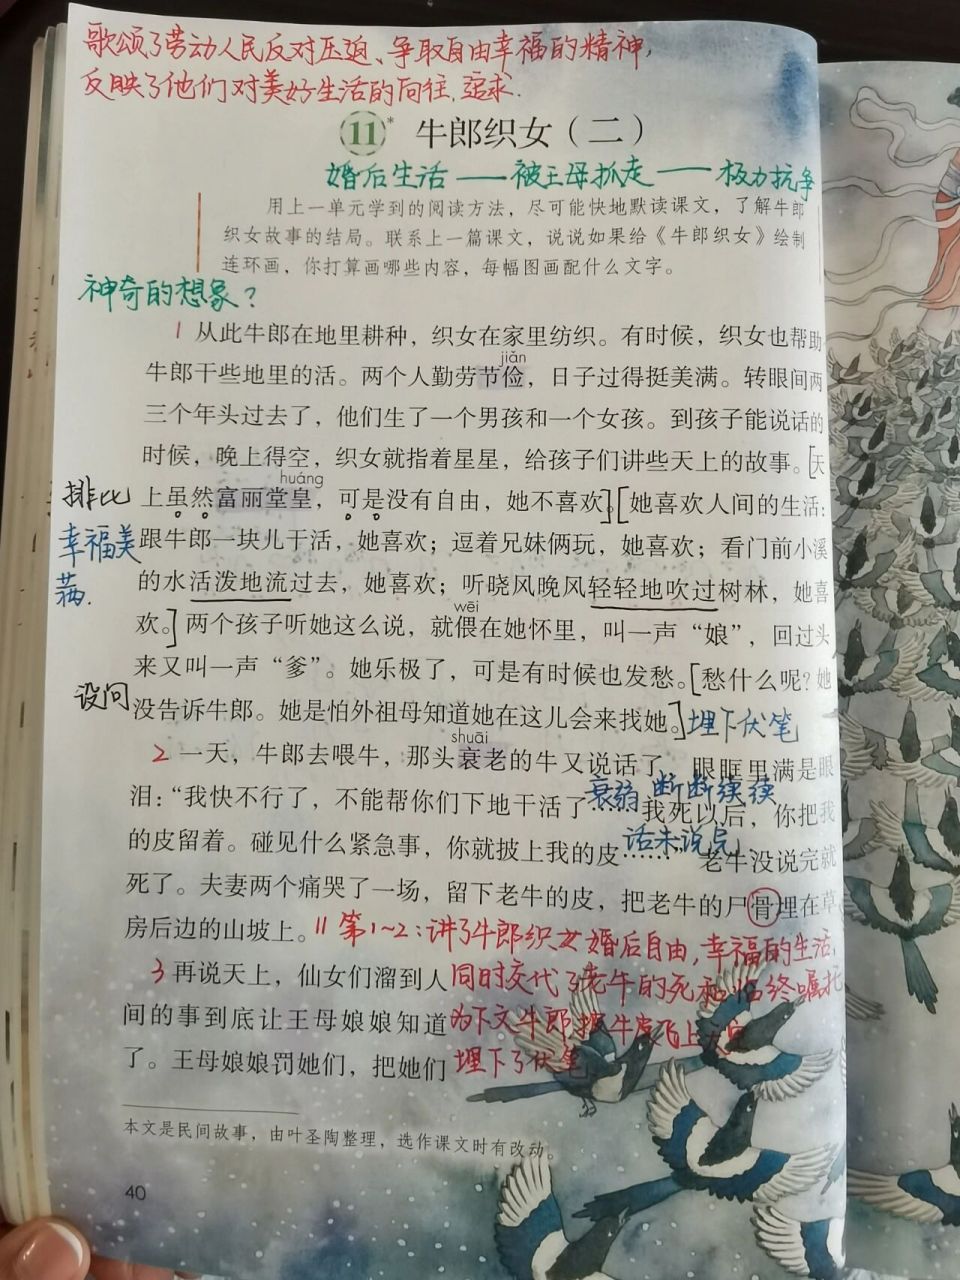 歌颂了劳动人民反对压迫、争取自由幸福的精神,
反映了他们对美好生活的向往、追求.
11* 牛郎织女（二）
婚后生活——被王母抓走——极力抗争
用上一单元学到的阅读方法，尽可能快地默读课文，了解牛郎
织女故事的结局。联系上一篇课文，说说如果给《牛郎织女》绘制
连环画，你打算画哪些内容，每幅图画配什么文字。
神奇的想象？
1 从此牛郎在地里耕种，织女在家里纺织。有时候，织女也帮助
jiǎn
牛郎干些地里的活。两个人勤劳节俭，日子过得挺美满。转眼间两
三个年头过去了，他们生了一个男孩和一个女孩。到孩子能说话的
时候，晚上得空，织女就指着星星，给孩子们讲些天上的故事。[天
huáng
排比 上虽然富丽堂皇，可是没有自由，她不喜欢。][她喜欢人间的生活：
幸福美 跟牛郎一块儿干活，她喜欢；逗着兄妹俩玩，她喜欢；看门前小溪
满. 的水活泼地流过去，她喜欢；听晓风晚风轻轻地吹过树林，她喜
wēi
欢。]两个孩子听她这么说，就偎在她怀里，叫一声“娘”，回过头
来又叫一声“爹”。她乐极了，可是有时候也发愁。[愁什么呢？她
设问 没告诉牛郎。她是怕外祖母知道她在这儿会来找她。]埋下伏笔
shuāi
2 一天，牛郎去喂牛，那头衰老的牛又说话了，眼眶里满是眼
衰弱 断断续续
泪：“我快不行了，不能帮你们下地干活了……我死以后，你把我
话未说完
的皮留着。碰见什么紧急事，你就披上我的皮……”老牛没说完就
死了。夫妻两个痛哭了一场，留下老牛的皮，把老牛的尸骨埋在草
房后边的山坡上。 || 第1~2：讲了牛郎织女婚后自由,幸福的生活,
3 再说天上，仙女们溜到人 同时交代了老牛的死和临终嘱托
间的事到底让王母娘娘知道 为下文牛郎披牛皮飞上天
了。王母娘娘罚她们，把她们 埋下了伏笔
本文是民间故事，由叶圣陶整理，选作课文时有改动。
40